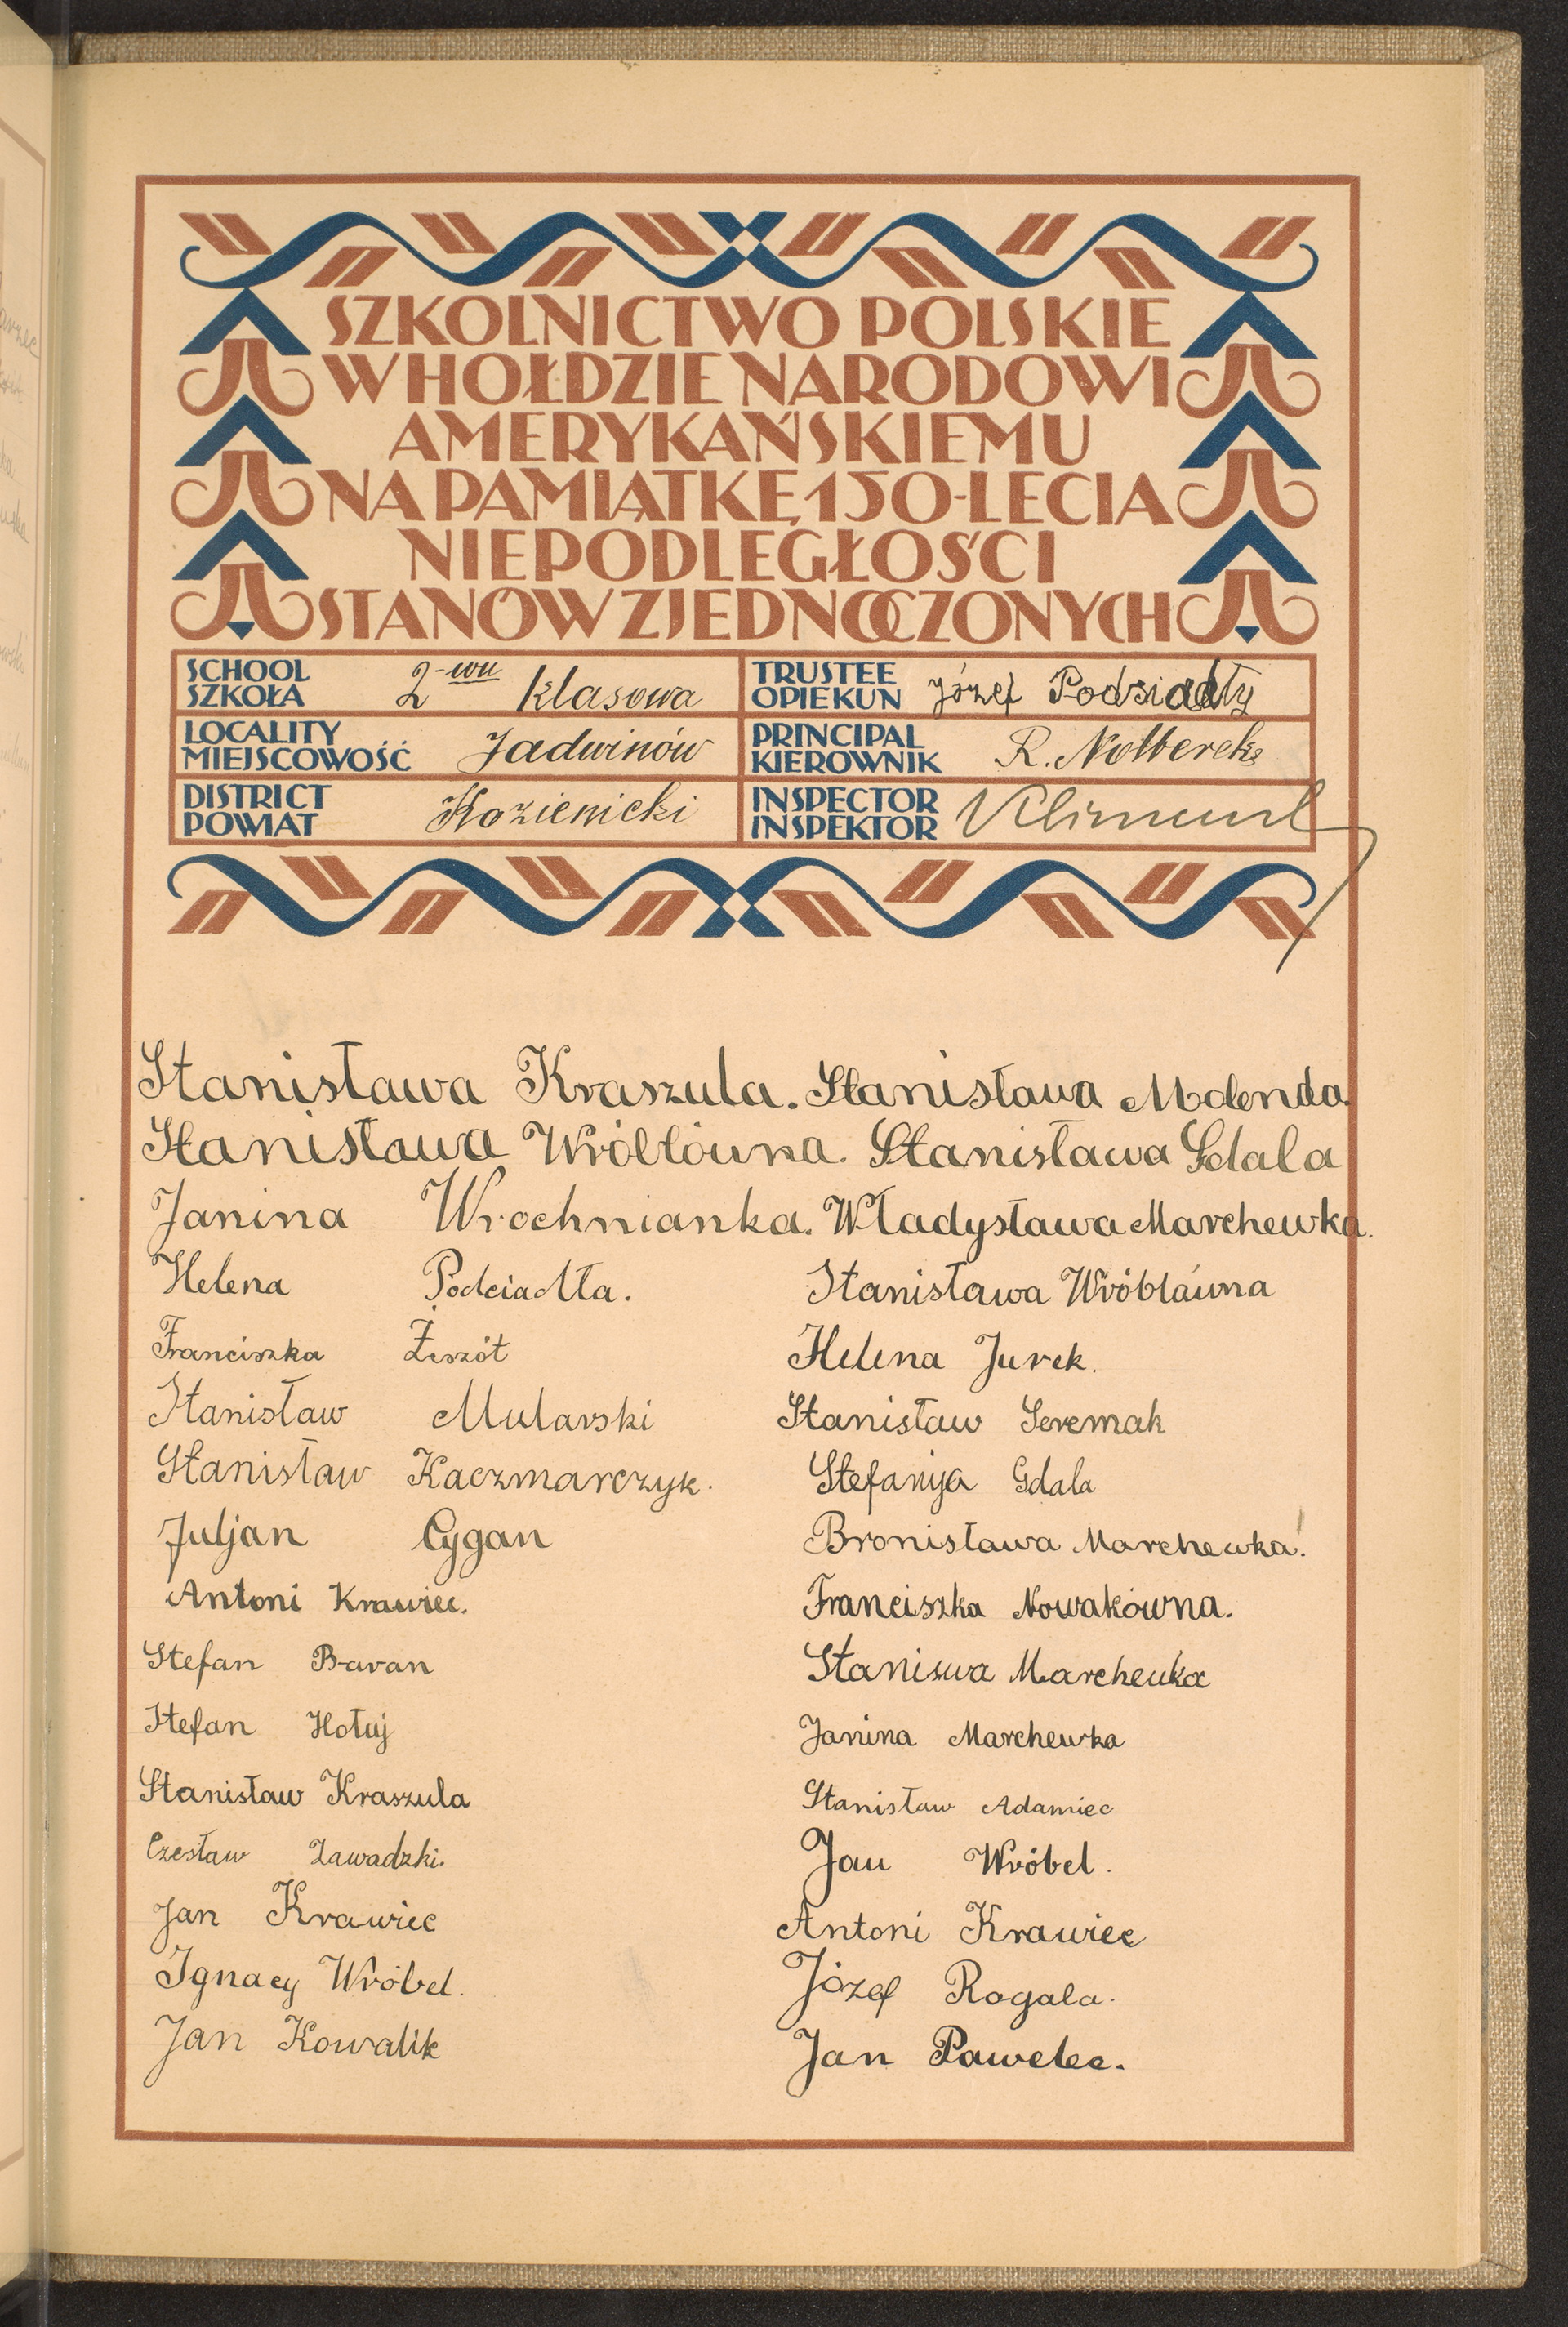 SZKOLNICTWO POLSKIE
W HOŁDZIE NARODOWI
AMERYKAŃSKIEMU
NA PAMIĄTKĘ 150-LECIA
NIEPODLEGŁOŚCI
STANÓW ZJEDNOCZONYCH
SCHOOL
SZKOŁA 2-wu klasowa
TRUSTEE
OPIEKUN Józef Podsiadły
LOCALITY
MIEJSCOWOŚĆ Jadwinów
PRINCIPAL
KIEROWNIK R.
DISTRICT
POWIAT Kozienicki
INSPECTOR
INSPEKTOR
Stanisława Kraszula. Stanisława Molenda
Stanisława Wróblówna. Stanisława Gdala
Janina Wrochnianka. Władysława Marchewka.
Helena Podciadła. Stanisława Wróblówna
Franciszka Helena Jurek.
Stanisław Mularski Stanisław Seremak
Stanisław Kaczmarczyk. Stefanja Gdala
Juljan Cygan Bronisława Marchewka.
Antoni Krawiec. Franciszka Nowakówna.
Stefan Baran Staniswa Marchewka
Stefan Hołuj Janina Marchewka
Stanisław Kraszula Stanisław Adamiec
Czesław Zawadzki. Jan Wróbel.
Jan Krawiec Antoni Krawiec
Ignacy Wróbel. Józef Rogala.
Jan Kowalik Jan Pawelec.